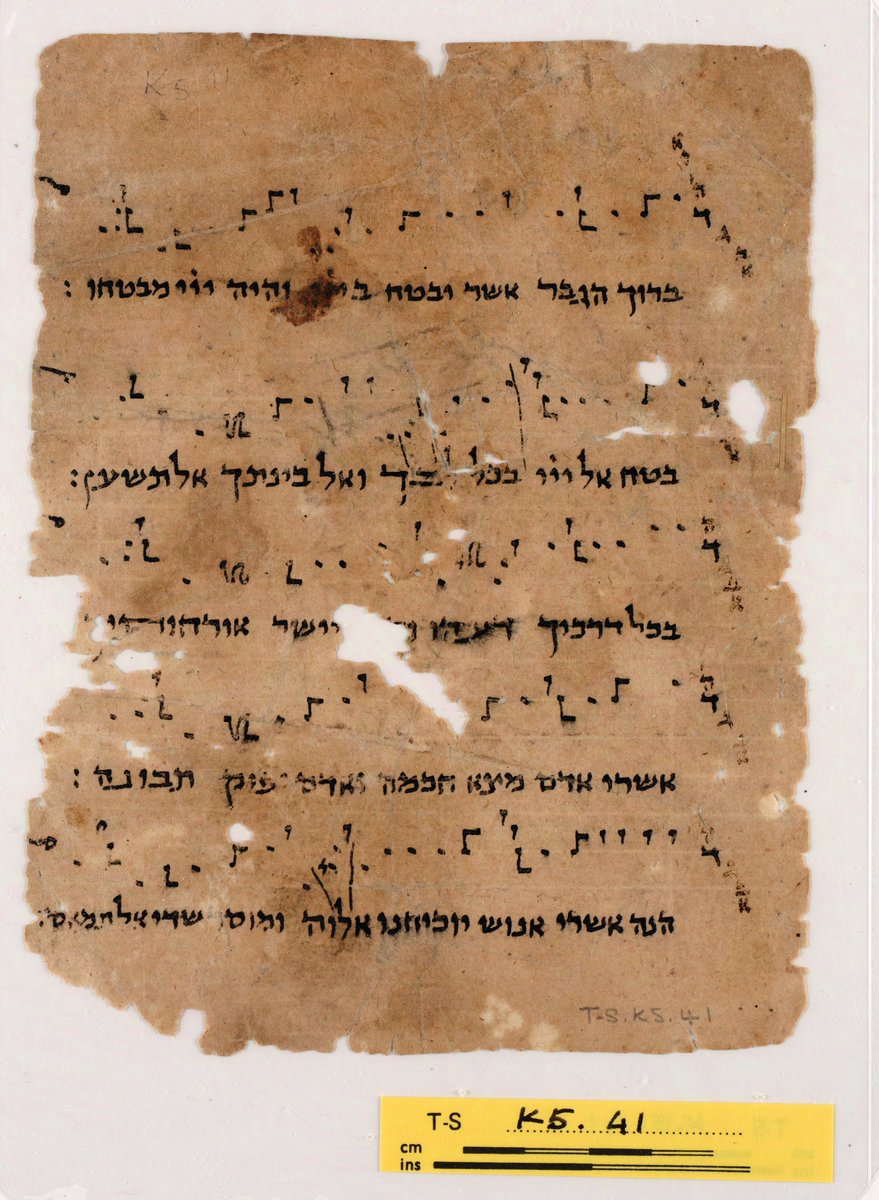 K5 41
ד
ברוך הגבר אשר יבטח והיה ייי מבטחו :
ד
בטח אל ייי בכל ואל בינתך אל תשען :
ד
בכל דרכיך דעהו יישר אורחותיך
ד
אשרי אדם מצא חכמה ואדם יפיק תבונה :
ד
הנה אשרי אנוש יוכיחנו אלוה ומוסר שדי אל תמאס :
T-S.K5.41
T-S K5. 41
cm
ins